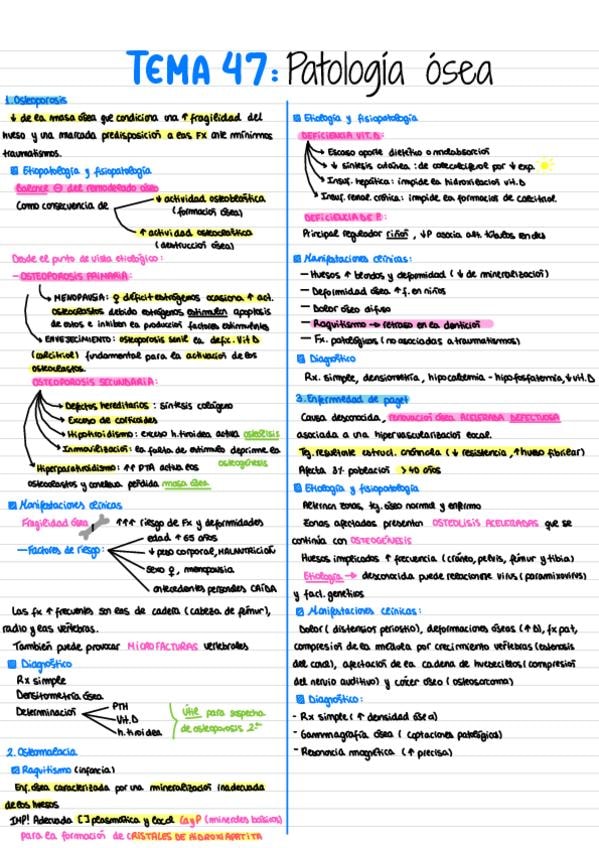 TEMA 47: Patología ósea
1. Osteoporosis
↓ de la masa ósea que condiciona una ↑ fragilidad del
hueso y una marcada predisposición a las Fx ante mínimos
traumatismos.
Etiopatología y fisiopatología
Balance ⊖ del remodelado óseo
Como consecuencia de
↓ actividad osteoblástica
(formación ósea)
↑ actividad osteoclástica
(destrucción ósea)
Desde el punto de vista etiológico:
- OSTEOPOROSIS PRIMARIA:
MENOPAUSIA: ♀ déficit estrógenos ocasiona ↑ act.
osteoclastos debido estrógenos estimulan apoptosis
de estos e inhiben la producción factores estimulantes
ENVEJECIMIENTO: osteoporosis senil la defic. Vit D
(calcitriol) fundamental para la activación de los
osteoclastos.
OSTEOPOROSIS SECUNDARIA:
Defectos hereditarios: síntesis colágeno
Exceso de corticoides
Hipotiroidismo: exceso h.tiroidea activa osteólisis
Inmovilización: la falta de estímulo deprime la
osteogénesis
Hiperparatiroidismo: ↑ PTA activa los
osteoclastos y conlleva pérdida masa ósea
Manifestaciones clínicas
Fragilidad ósea ↑↑↑ riesgo de Fx y deformidades
- Factores de riesgo:
edad ↑ 65 años
↓ peso corporal, MALNUTRICIÓN
sexo ♀, menopausia
antecedentes personales CAÍDA
Las fx ↑ frecuentes son las de cadera (cabeza de fémur),
radio y las vértebras.
También puede provocar MICROFACTURAS vertebrales
Diagnóstico
Rx simple
Densitometría ósea
Determinación
PTH
Vit. D
h. tiroidea
útil para sospecha
de osteoporosis 2ª
2. Osteomalacia
Raquitismo (infancia)
Enf. ósea caracterizada por una mineralización inadecuada
de los huesos
IMP! Adecuada [ ] plasmática y local Ca y P (minerales básicos)
para la formación de CRISTALES DE HIDROXIAPATITA
Etiología y fisiopatología
DEFICIENCIA VIT. D:
Escaso aporte dietético o malabsorción
↓ síntesis cutánea: de colecalciferol por ↓ exp.
Insuf. hepática: impide la hidroxilación vit. D
Insuf. renal crónica: impide la formación de calcitriol.
DEFICIENCIA DE P:
Principal regulador riñón, ↓P asocia alt. túbulos renales
Manifestaciones clínicas:
- Huesos ↑ blandos y deformidad (↓ de mineralización)
- Deformidad ósea ↑ f. en niños
- Dolor óseo difuso
- Raquitismo → retraso en la dentición
- Fx. patológicas (no asociadas a traumatismos)
Diagnóstico
Rx. simple, densiometría, hipocalcemia - hipofosfatemia, ↓ vit. D
3. Enfermedad de paget
Causa desconocida, renovación ósea ACELERADA DEFECTUOSA
asociada a una hipervascularización local.
Tej. resultante estruct. anómala (↓ resistencia, ↑ hueso fibrilar)
Afecta 3% población > 40 años
Etiología y fisiopatología
Alternan zonas, tej. óseo normal y enfermo
Zonas afectadas presentan OSTEOLISIS ACELERADAS que se
continúa con OSTEOGÉNESIS
Huesos implicados ↑ frecuencia (cráneo, pelvis, fémur y tibia)
Etiología → desconocida puede relacione virus (paramixovirus)
y fact. genéticos
Manifestaciones clínicas:
Dolor (distensión periostio), deformaciones óseas (↑D), fx pat,
compresión de la médula por crecimiento vértebras (estenosis
del canal), afectación de la cadena de huesecillos (compresión
del nervio auditivo) y cáncer óseo (osteosarcoma)
Diagnóstico:
- Rx simple (↑ densidad ósea)
- Gammagrafía ósea (captaciones patológicas)
- Resonancia magnética (↑ precisa)